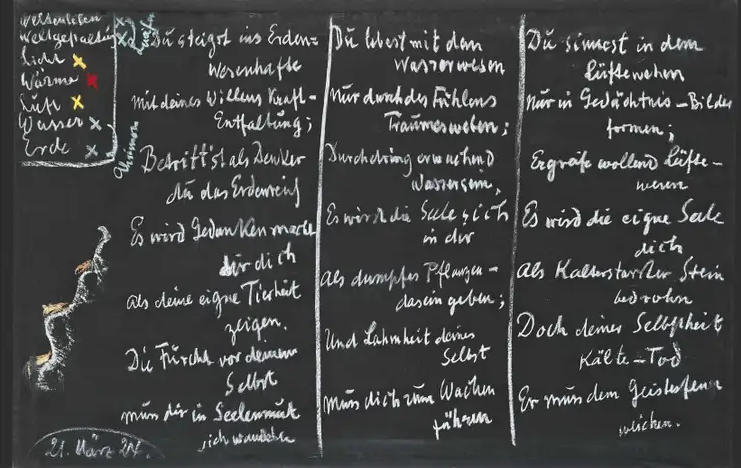 Weltenleben,
Weltgestaltung
Licht
Wärme
Luft
Wasser
Erde
Du steigst ins Erden=
wesenhafte
mit deines Willens Kraft-
Entfaltung;
Betrittst als Denker
du das Erdenreich
Es wird Gedankenmacht
dir dich
als deine eigne Tierheit
zeigen.
Die Furcht vor deinem
Selbst
muss dir in Seelenmut
sich wandeln
21. März 24.
Du lebest mit dem
Wasserwesen
nur durch des Fühlens
Traumesweben;
Durchdring erwachend
Wassersein,
Es wird die Seele sich
in dir
als dumpfes Pflanzen-
dasein geben;
Und Lahmheit deines
Selbst
muss dich zum Wachen
führen
Du sinnest in dem
Lüftewehen
nur in Gedächtnis-Bildes
formen;
Ergreife wollend Lüfte-
wesen
Es wird die eigne Seele
dich
als Kalterstarrter Stein
bedrohn
Doch deiner Selbstheit
Kälte-Tod
Er muss dem Geistesfeuer
weichen.